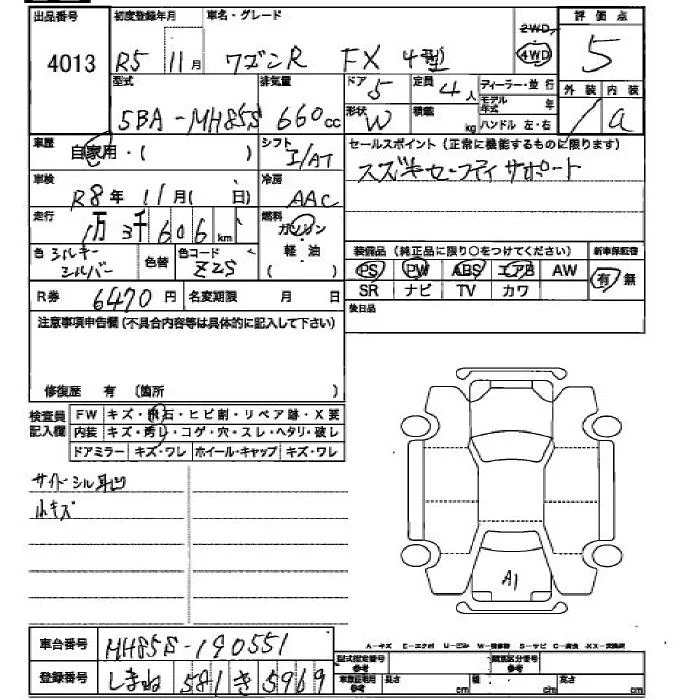 出品番号 初度登録年月 車名・グレード 2WD 評価点
4013 R5 11月 ワゴンR FX 4型 4WD 5
型式 排気量 ドア 5 定員 4人 ディーラー・並行 外装 内装
5BA-MH85S 660cc 形状 W 積載 kg モデル年式 年 ハンドル 左・右 a
車歴 自家用・( ) シフト I/AT セールスポイント (正常に機能するものに限ります)
車検 R8年 11月( 日) 冷房 AAC スズキセーフティサポート
走行 1万3千606km 燃料 ガソリン 軽油 ( )
色 シルキーシルバー 色替 色コード Z2S 装備品 (純正品に限り○をつけてください) 新車保証書
PS PW ABS エアB AW 有・無
R券 6470円 名変期限 月 日 SR ナビ TV カワ
注意事項申告欄 (不具合内容等は具体的に記入して下さい) 後日品
修復歴 有 (箇所 )
検査員記入欄 FW キズ・飛石・ヒビ割・リペア跡・X要
内装 キズ・汚れ・コゲ・穴・スレ・ヘタリ・破レ
ドアミラー キズ・ワレ ホイール・キャップ キズ・ワレ
サイドシル耳凹
小キズ
A1
車台番号 MH85S-190551
A-キズ E-エクボ U-ヒビ W-補修跡 S-サビ C-腐食 XX-交換済
登録番号 しまね 581 き 5969
型式指定番号 参考 類別区分番号 参考
車庫証明用 参考 長さ cm 幅 cm 高さ cm